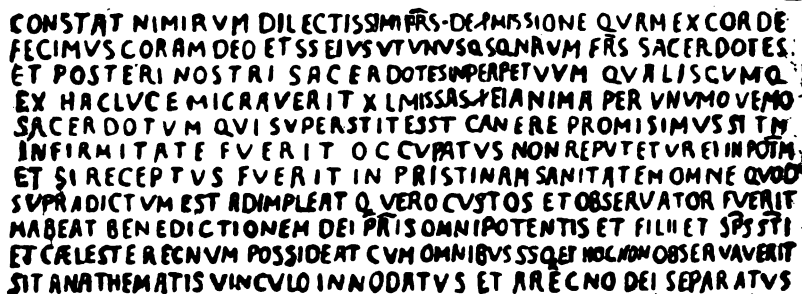 CONSTAT NIMIRVM DILECTISSIMI FRS · DE PMISSIONE QVAM EX CORDE
FECIMVS CORAM DEO ET SS EIVS VT VNVSQSQ NRVM FRS SACERDOTES.
ET POSTERI NOSTRI SACERDOTES INPERPETVVM QVALISCVMQ
EX HAC LVCE MICRAVERIT XL MISSAS P EI ANIMA PER VNVMOVEMQ
SACERDOTVM QVI SVPERSTITES ST CANERE PROMISIMVS SI TM
INFIRMITATE FVERIT OCCVPATVS NON REPVTETVR EI IN POTM
ET SI RECEPTVS FVERIT IN PRISTINAM SANITATEM OMNE QVOD
SVPRADICTVM EST ADIMPLEAT Q VERO CVSTOS ET OBSERVATOR FVERIT
HABEAT BENEDICTIONEM DEI PRIS OMNIPOTENTIS ET FILII ET SPS STI
ET CÆLESTE RECNVM POSSIDEAT CVM OMNIBVS SS QET HOC NON OBSERVAVERIT
SIT ANATHEMATIS VINCVLO INNODATVS ET A RECNO DEI SEPARATVS